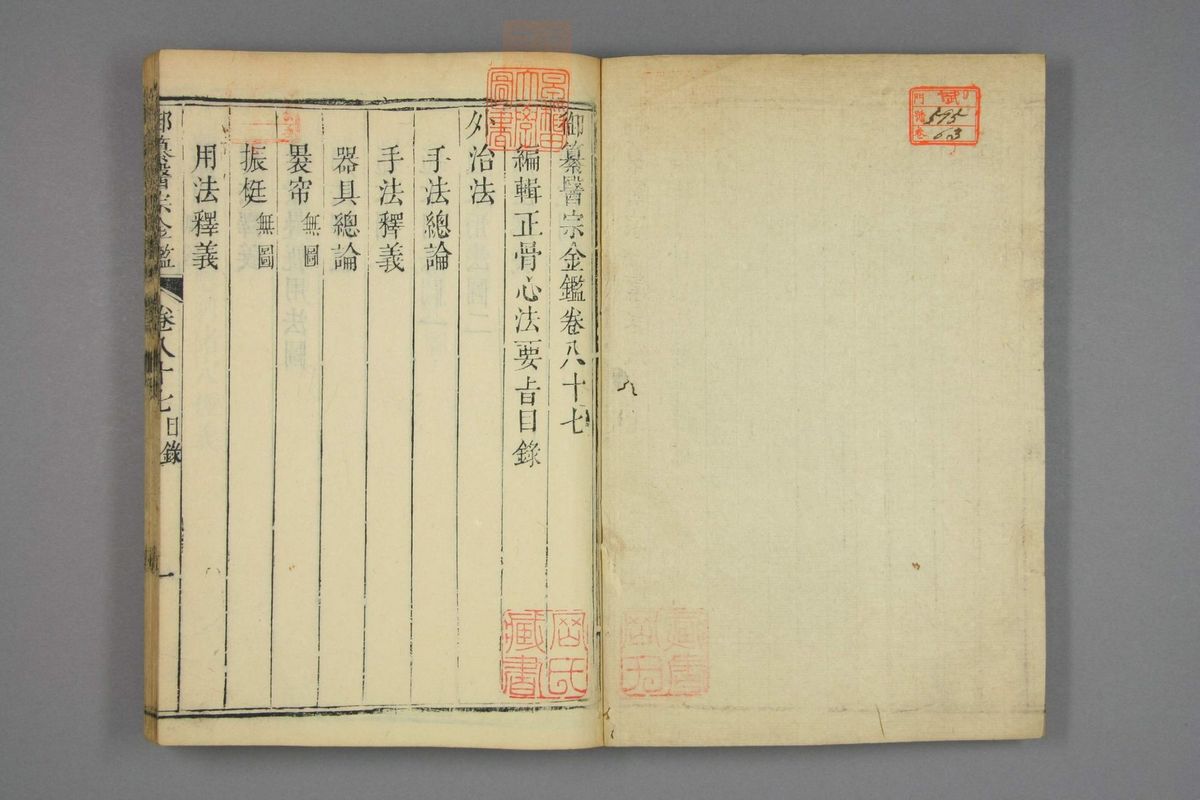 御纂醫宗金鑑卷八十七
編輯正骨心法要旨目錄
外治法
手法總論
手法釋義
器具總論
裹帘 無圖
振梃 無圖
用法釋義
御纂醫宗金鑑 卷八十七目錄 一
岡氏藏書
門 號 卷
595
63